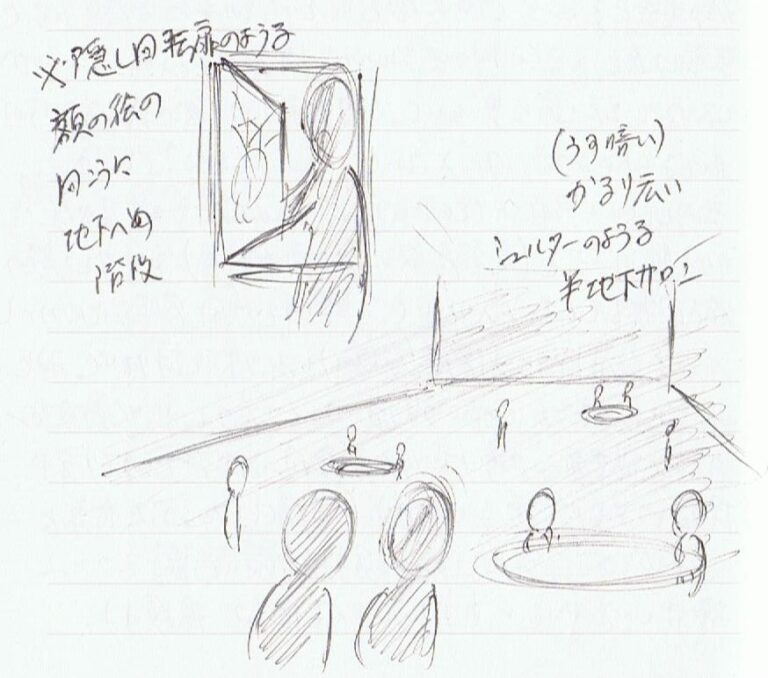 ※隠し回転扉のような
額の絵の
向こうに
地下への
階段
(うす暗い)
かなり広い
シェルターのような
半地下サロン